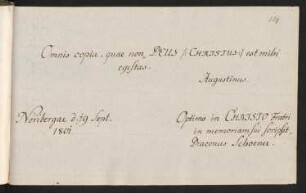 Omnis copia, quae non DEUS /: CHRISTUS :/ est mihi
egestas.
Augustinus.
Noribergae d. 19 Sept.
1801.
Optimo in CHRISTO Fratri
in memoriam sui scripsit
Diaconus Schoener.